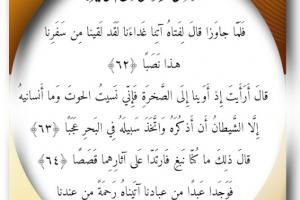 فَلَمَّا جاوَزا قالَ لِفَتاهُ آتِنا غَداءَنا لَقَد لَقينا مِن سَفَرِنا
هـذا نَصَبًا ﴿٦٢﴾
قالَ أَرَأَيتَ إِذ أَوَينا إِلَى الصَّخرَةِ فَإِنّي نَسيتُ الحوتَ وَما أَنسانيهُ
إِلَّا الشَّيطانُ أَن أَذكُرَهُ وَاتَّخَذَ سَبيلَهُ فِي البَحرِ عَجَبًا ﴿٦٣﴾
قالَ ذلِكَ ما كُنّا نَبغِ فَارتَدّا عَلى آثارِهِما قَصَصًا ﴿٦٤﴾
فَوَجَدا عَبدًا مِن عِبادِنا آتَيناهُ رَحمَةً مِن عِندِنا